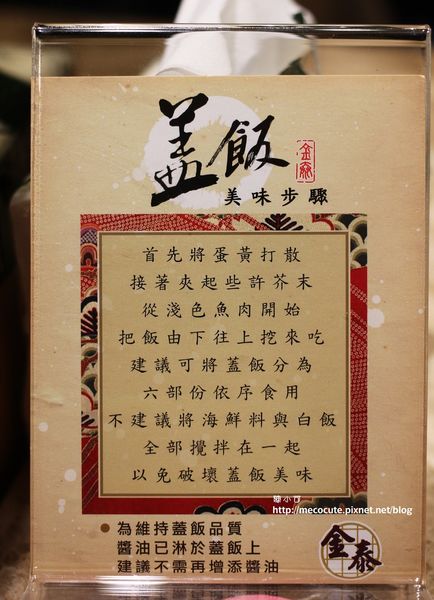 蓋飯
金泰
美味步驟
首先將蛋黃打散
接著夾起些許芥末
從淺色魚肉開始
把飯由下往上挖來吃
建議可將蓋飯分為
六部份依序食用
不建議將海鮮料與白飯
全部攪拌在一起
以免破壞蓋飯美味
http://mecocute.pixnet.net/blog
●為維持蓋飯品質
醬油已淋於蓋飯上
建議不需再增添醬油
金泰